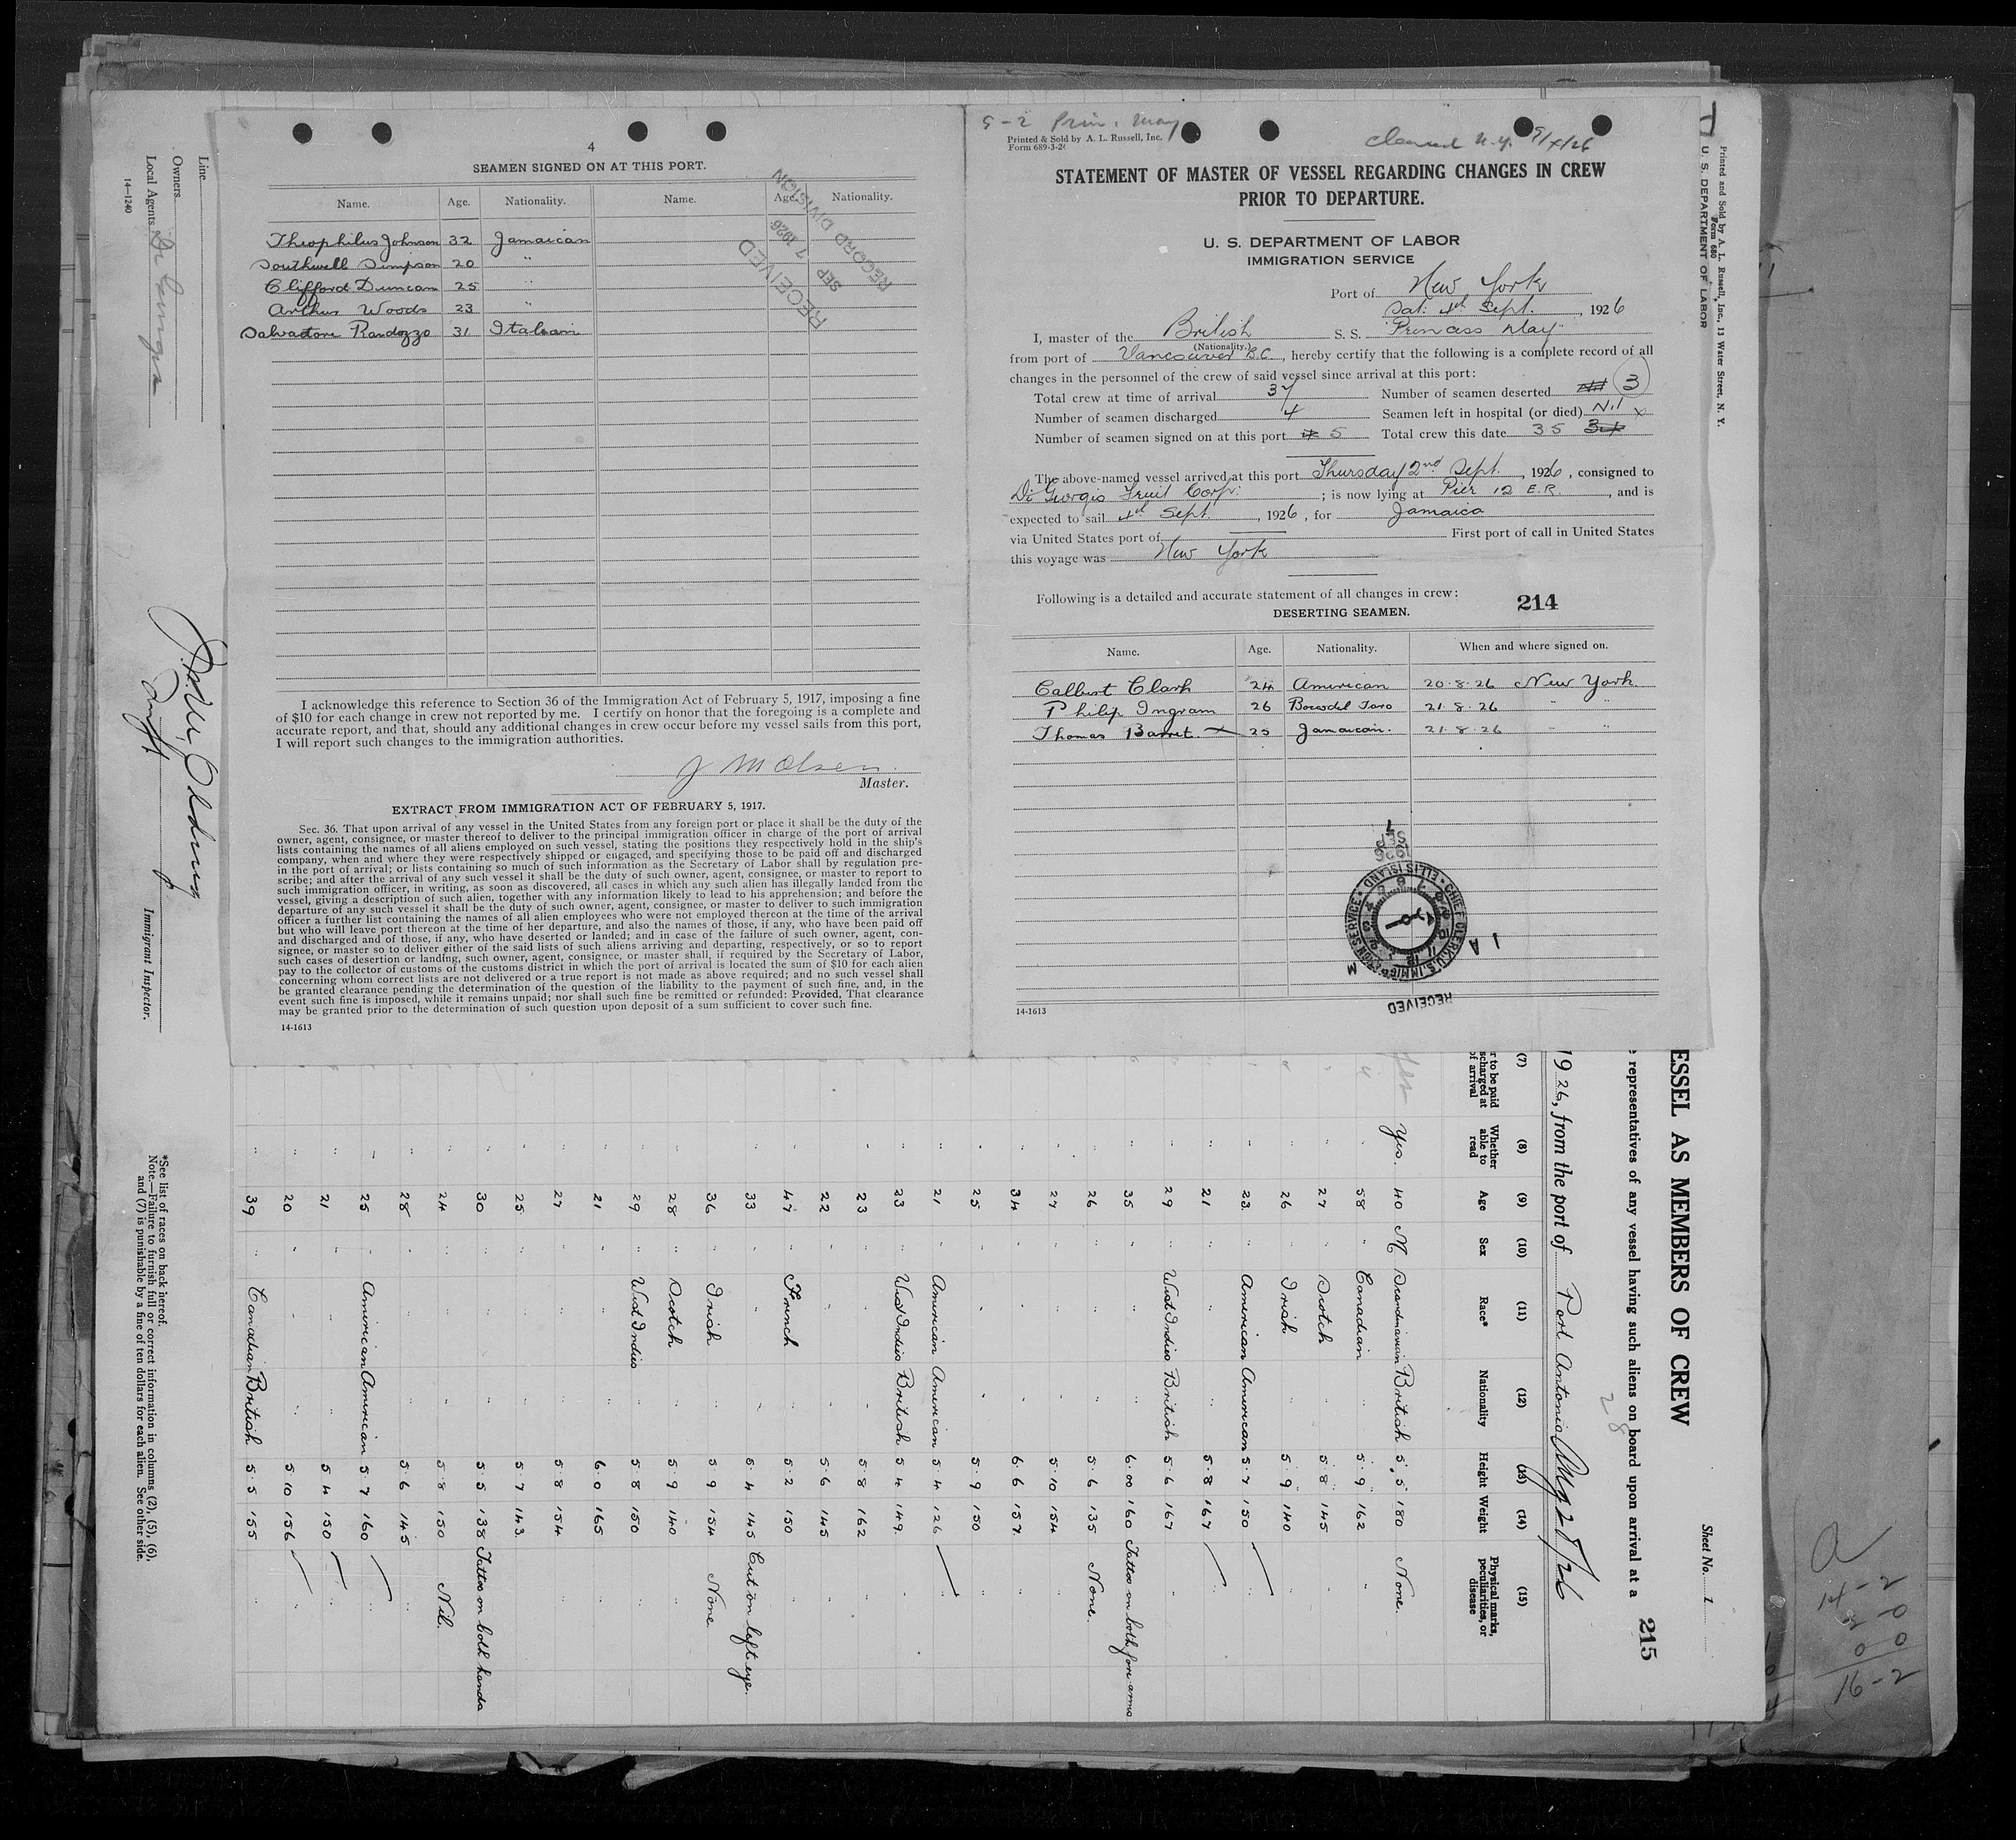 4
SEAMEN SIGNED ON AT THIS PORT.
Name. Age. Nationality. Name. Age. Nationality.
Theophilus Johnson 32 Jamaican
Southwell Simpson 20 "
Clifford Duncan 25 "
Arthur Woods 23 "
Salvadore Randozzo 31 Italian
RECEIVED
SEP 7 1926
RECORD DIVISION
I acknowledge this reference to Section 36 of the Immigration Act of February 5, 1917, imposing a fine
of $10 for each change in crew not reported by me. I certify on honor that the foregoing is a complete and
accurate report, and that, should any additional changes in crew occur before my vessel sails from this port,
I will report such changes to the immigration authorities.
J M Olsen
Master.
EXTRACT FROM IMMIGRATION ACT OF FEBRUARY 5, 1917.
Sec. 36. That upon arrival of any vessel in the United States from any foreign port or place it shall be the duty of the
owner, agent, consignee, or master thereof to deliver to the principal immigration officer in charge of the port of arrival
lists containing the names of all aliens employed on such vessel, stating the positions they respectively hold in the ship's
company, when and where they were respectively shipped or engaged, and specifying those to be paid off and discharged
in the port of arrival; or lists containing so much of such information as the Secretary of Labor shall by regulation pre-
scribe; and after the arrival of any such vessel it shall be the duty of such owner, agent, consignee, or master to report to
such immigration officer, in writing, as soon as discovered, all cases in which any such alien has illegally landed from the
vessel, giving a description of such alien, together with any information likely to lead to his apprehension; and before the
departure of any such vessel it shall be the duty of such owner, agent, consignee, or master to deliver to such immigration
officer a further list containing the names of all alien employees who were not employed thereon at the time of the arrival
but who will leave port thereon at the time of her departure, and also the names of those, if any, who have been paid off
and discharged and of those, if any, who have deserted or landed; and in case of the failure of such owner, agent, con-
signee, or master so to deliver either of the said lists of such aliens arriving and departing, respectively, or so to report
such cases of desertion or landing, such owner, agent, consignee, or master shall, if required by the Secretary of Labor,
pay to the collector of customs of the customs district in which the port of arrival is located the sum of $10 for each alien
concerning whom correct lists are not delivered or a true report is not made as above required; and no such vessel shall
be granted clearance pending the determination of the question of the liability to the payment of such fine, and, in the
event such fine is imposed, while it remains unpaid; nor shall such fine be remitted or refunded: Provided, That clearance
may be granted prior to the determination of such question upon deposit of a sum sufficient to cover such fine.
14-1613
9-2 Prin. May
Printed & Sold by A. L. Russell, Inc.
Form 689-3-26
Cleared N.Y. 9/4/26
STATEMENT OF MASTER OF VESSEL REGARDING CHANGES IN CREW
PRIOR TO DEPARTURE.
U. S. DEPARTMENT OF LABOR
IMMIGRATION SERVICE
Port of New York
Sat: 4th Sept. , 1926
I, master of the British S. S. Princess May
(Nationality.)
from port of Vancouver B.C. , hereby certify that the following is a complete record of all
changes in the personnel of the crew of said vessel since arrival at this port:
Total crew at time of arrival 37 Number of seamen deserted Nil 3
Number of seamen discharged 4 Seamen left in hospital (or died) Nil x
Number of seamen signed on at this port 5 Total crew this date 35 34
The above-named vessel arrived at this port Thursday 2nd Sept. , 1926 , consigned to
Di Giorgio Fruit Corp: ; is now lying at Pier 12 E.R. , and is
expected to sail 4th Sept. , 1926 , for Jamaica
via United States port of First port of call in United States
this voyage was New York
Following is a detailed and accurate statement of all changes in crew:
214
DESERTING SEAMEN.
Name. Age. Nationality. When and where signed on.
Calbert Clark 24 American 20.8.26 New York
Philip Ingram 26 Bocasdel Toro 21.8.26 " "
Thomas Barret x 25 Jamaican. 21.8.26 " "
SEP 1926
CHIEF CLERK U.S. IMMIGRATION SERVICE ELLIS ISLAND
RECEIVED
14-1613
Printed and Sold by A. L. Russell, Inc., 13 Water Street, N. Y.
Form 680
U. S. DEPARTMENT OF LABOR
Sheet No. 1
215
ESSEL AS MEMBERS OF CREW
representatives of any vessel having such aliens on board upon arrival at a
28
1926, from the port of Port Antonio Aug 28/26
(7) (8) (9) (10) (11) (12) (13) (14) (15)
r to be paid scharged at of arrival Whether able to read Age Sex Race* Nationality Height Weight Physical marks, peculiarities, or disease
Yes. 40 M Scandinavian British 5.5 180 None.
" 58 " Canadian " 5.9 162 "
" 27 " Scotch " 5.8 145 "
" 26 " Irish " 5.9 140 "
" 23 " American American 5.7 150 "
" 21 " " " 5.8 167 "
" 29 " West Indies British 5.6 167 "
" 35 " " " 6.00 160 Tattoo on both fore arms
" 26 " " " 5.6 135 None.
" 27 " " " 5.10 154 "
" 34 " " " 6.6 157 "
" 25 " " " 5.9 150 "
" 21 " American American 5.4 126 "
" 23 " West Indies British 5.4 149. "
" 23 " " " 5.8 162 "
" 22 " " " 5.6 145 "
" 47 " French " 5.2 150 "
" 33 " " " 5.4 145 Cut on left eye.
" 36 " Irish " 5.9 154 None.
" 28 " Scotch " 5.9 140 "
" 29 " West Indies " 5.8 150 "
" 21 " " " 6.0 165 "
" 27 " " " 5.8 154 "
" 25 " " " 5.7 143. "
" 30 " " " 5.5 138 Tattoo on both hands
" 24 " " " 5.8 150 Nil.
" 28 " " " 5.6 145 "
" 25 " American American 5.7 160 "
" 21 " " " 5.4 150 "
" 20 " " " 5.10 156 "
" 39 " Canadian British 5.5 155 "
Line
Owners
Local Agents Di Giorgio
14-1240
Immigrant Inspector.
*See list of races on back hereof.
Note.—Failure to furnish full or correct information in columns (2), (5), (6),
and (7) is punishable by a fine of ten dollars for each alien. See other side.
14-2
2-0
0 0
16-2